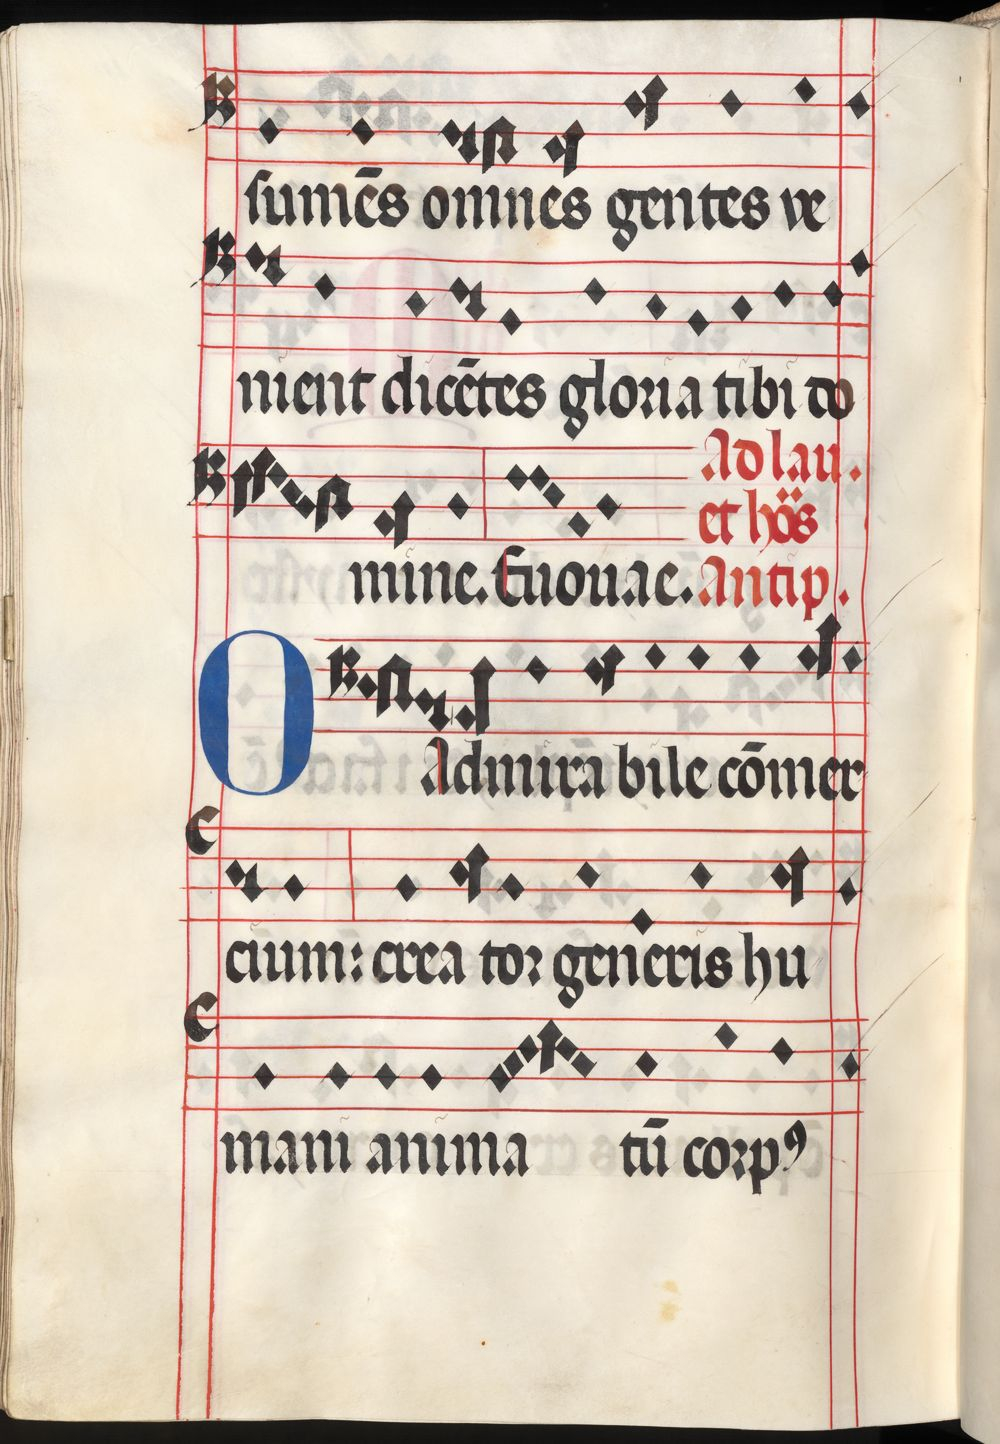 sumēs omnes gentes ve
nient dicētes gloria tibi do
Ad lau.
et hōs
mine. Euouae. Antip.
O Admira bile cōmer
cium: crea tor generis hu
mani anima tū corpꝰ